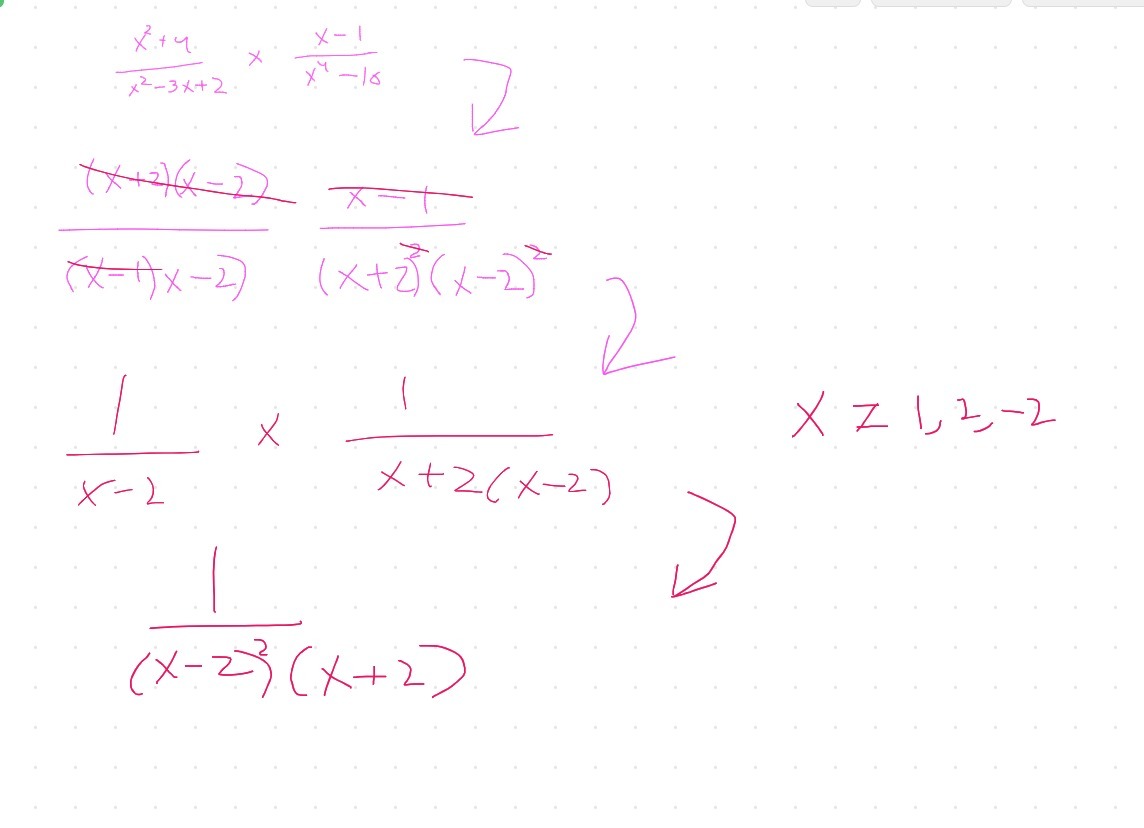 x²+4 / x²-3x+2 × x-1 / x⁴-16
(x+2)(x-2) / (x-1)x-2) x-1 / (x+2)²(x-2)²
1 / x-2 × 1 / x+2(x-2)
x ≠ 1, 2, -2
1 / (x-2)²(x+2)